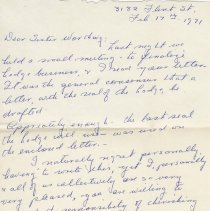 3132 Flint St,
Feb 17th, 1971
Dear Sister Worthing:
Last night we
held a small meeting - to finalize
Lodge business, & I read your letter.
It was the general consensus that a
letter, with the seal of the Lodge, be
drafted.
Appropriately enough - the last seal
the Lodge will use was used on
the enclosed letter.
I naturally regret personally,
having to write this, yet I, personally
& all of us collectively are so very
very pleased, you are willing to
responsibility of cherishing